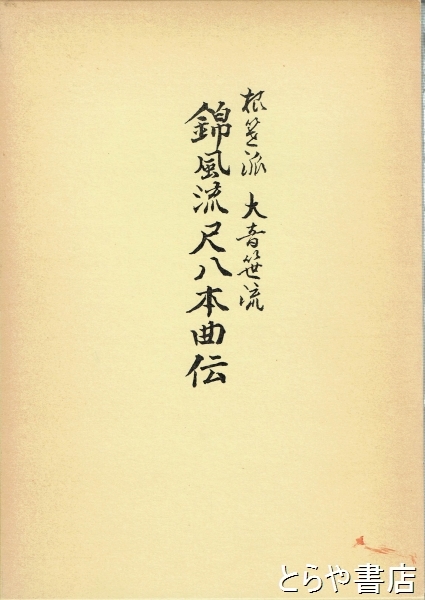 根笹派 大音笹流
錦風流尺八本曲伝
とらや書店